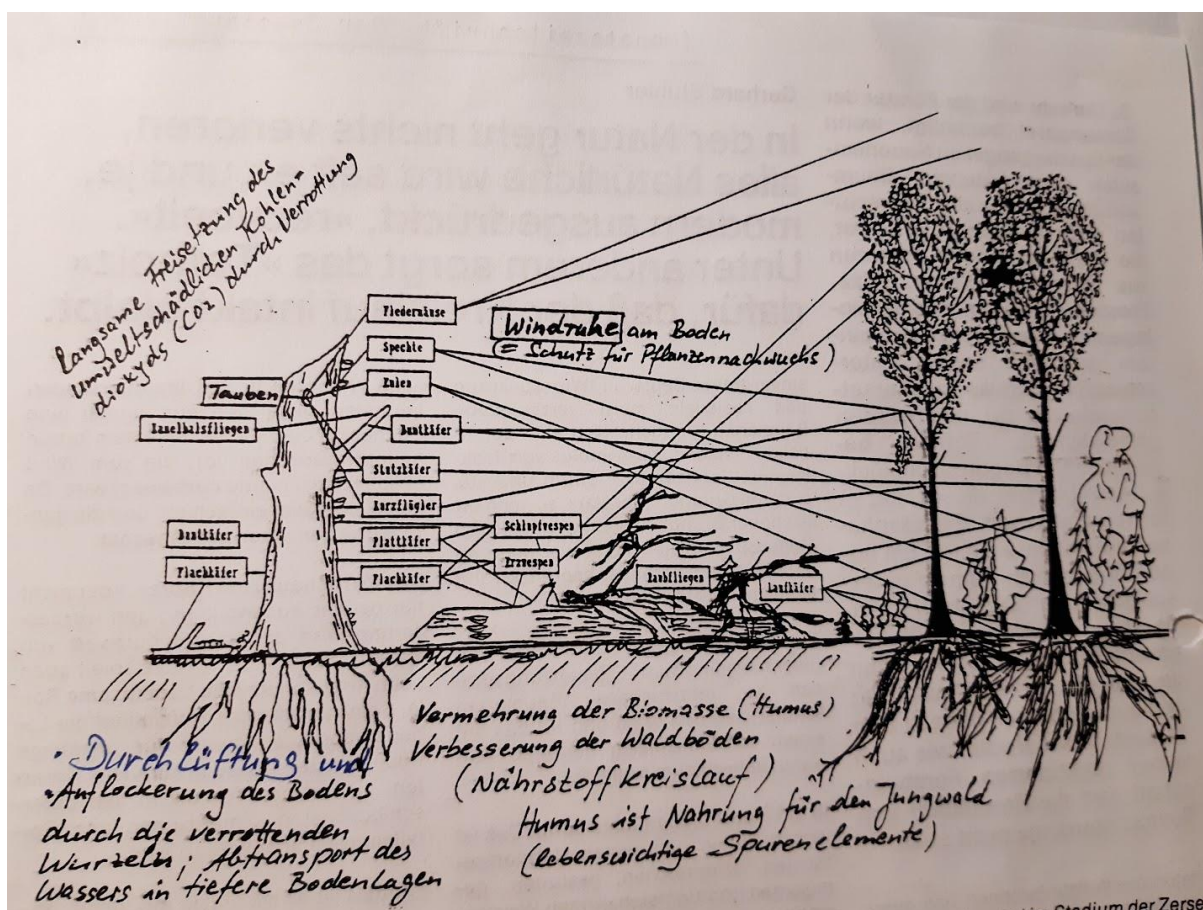 Langsame Freisetzung des
umweltschädlichen Kohlen=
dioxyds (CO2) durch Verrottung
Fledermäuse
Spechte
Eulen
Windruhe am Boden
(= Schutz für Pflanzennachwuchs)
Tauben
Kamelhalsfliegen
Buntkäfer
Stutzkäfer
Kurzflügler
Plattkäfer
Flachkäfer
Schlupfwespen
Erzwespen
Raubfliegen
Laufkäfer
Buntkäfer
Flachkäfer
• Durchlüftung und
• Auflockerung des Bodens
durch die verrottenden
Wurzeln; Abtransport des
Wassers in tiefere Bodenlagen
Vermehrung der Biomasse (Humus)
Verbesserung der Waldböden
(Nährstoffkreislauf)
Humus ist Nahrung für den Jungwald
(lebenswichtige Spurenelemente)
Stadium der Zers